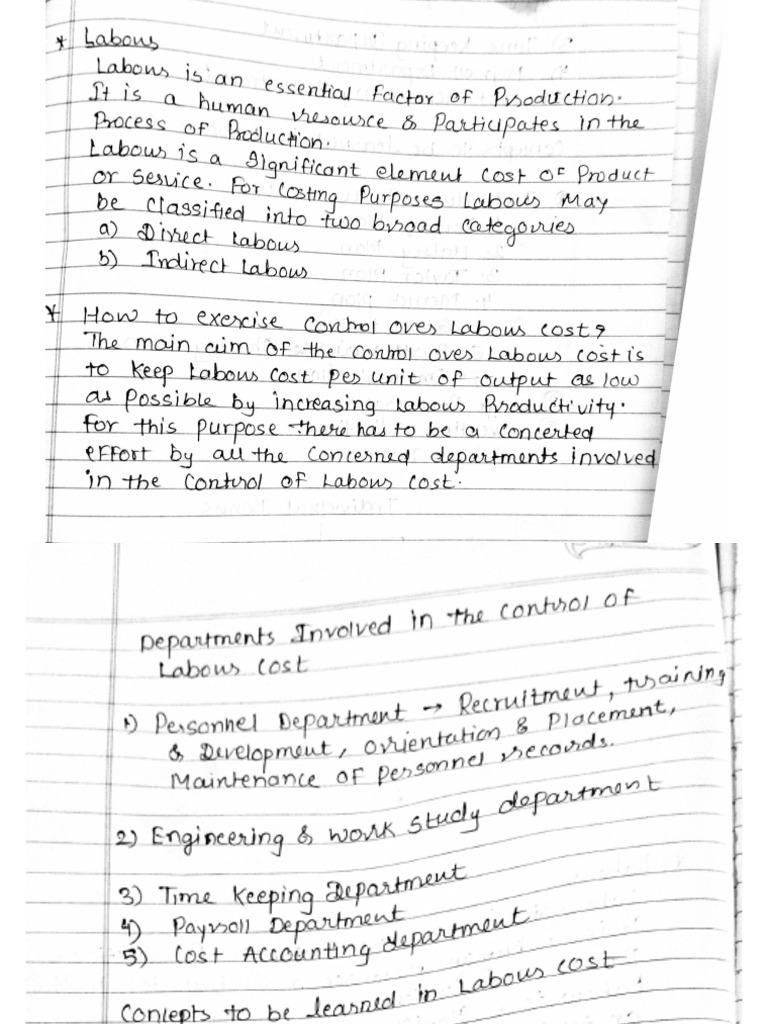 * Labour
Labour is an essential Factor of Production.
It is a human resource & Participates in the
Process of Production.
Labour is a significant element cost of Product
or Service. For Costing Purposes Labour May
be classified into two broad categories
a) Direct Labour
b) Indirect Labour
* How to exercise control over Labour cost?
The main aim of the control over Labour cost is
to keep Labour cost per unit of output as low
as possible by increasing Labour Productivity.
For this purpose there has to be a concerted
effort by all the concerned departments involved
in the control of Labour cost.
Departments Involved in the control of
Labour cost
1) Personnel Department → Recruitment, training
& Development, orientation & Placement,
Maintenance of personnel records.
2) Engineering & work study department
3) Time Keeping Department
4) Payroll Department
5) Cost Accounting department
Concepts to be learned in Labour cost